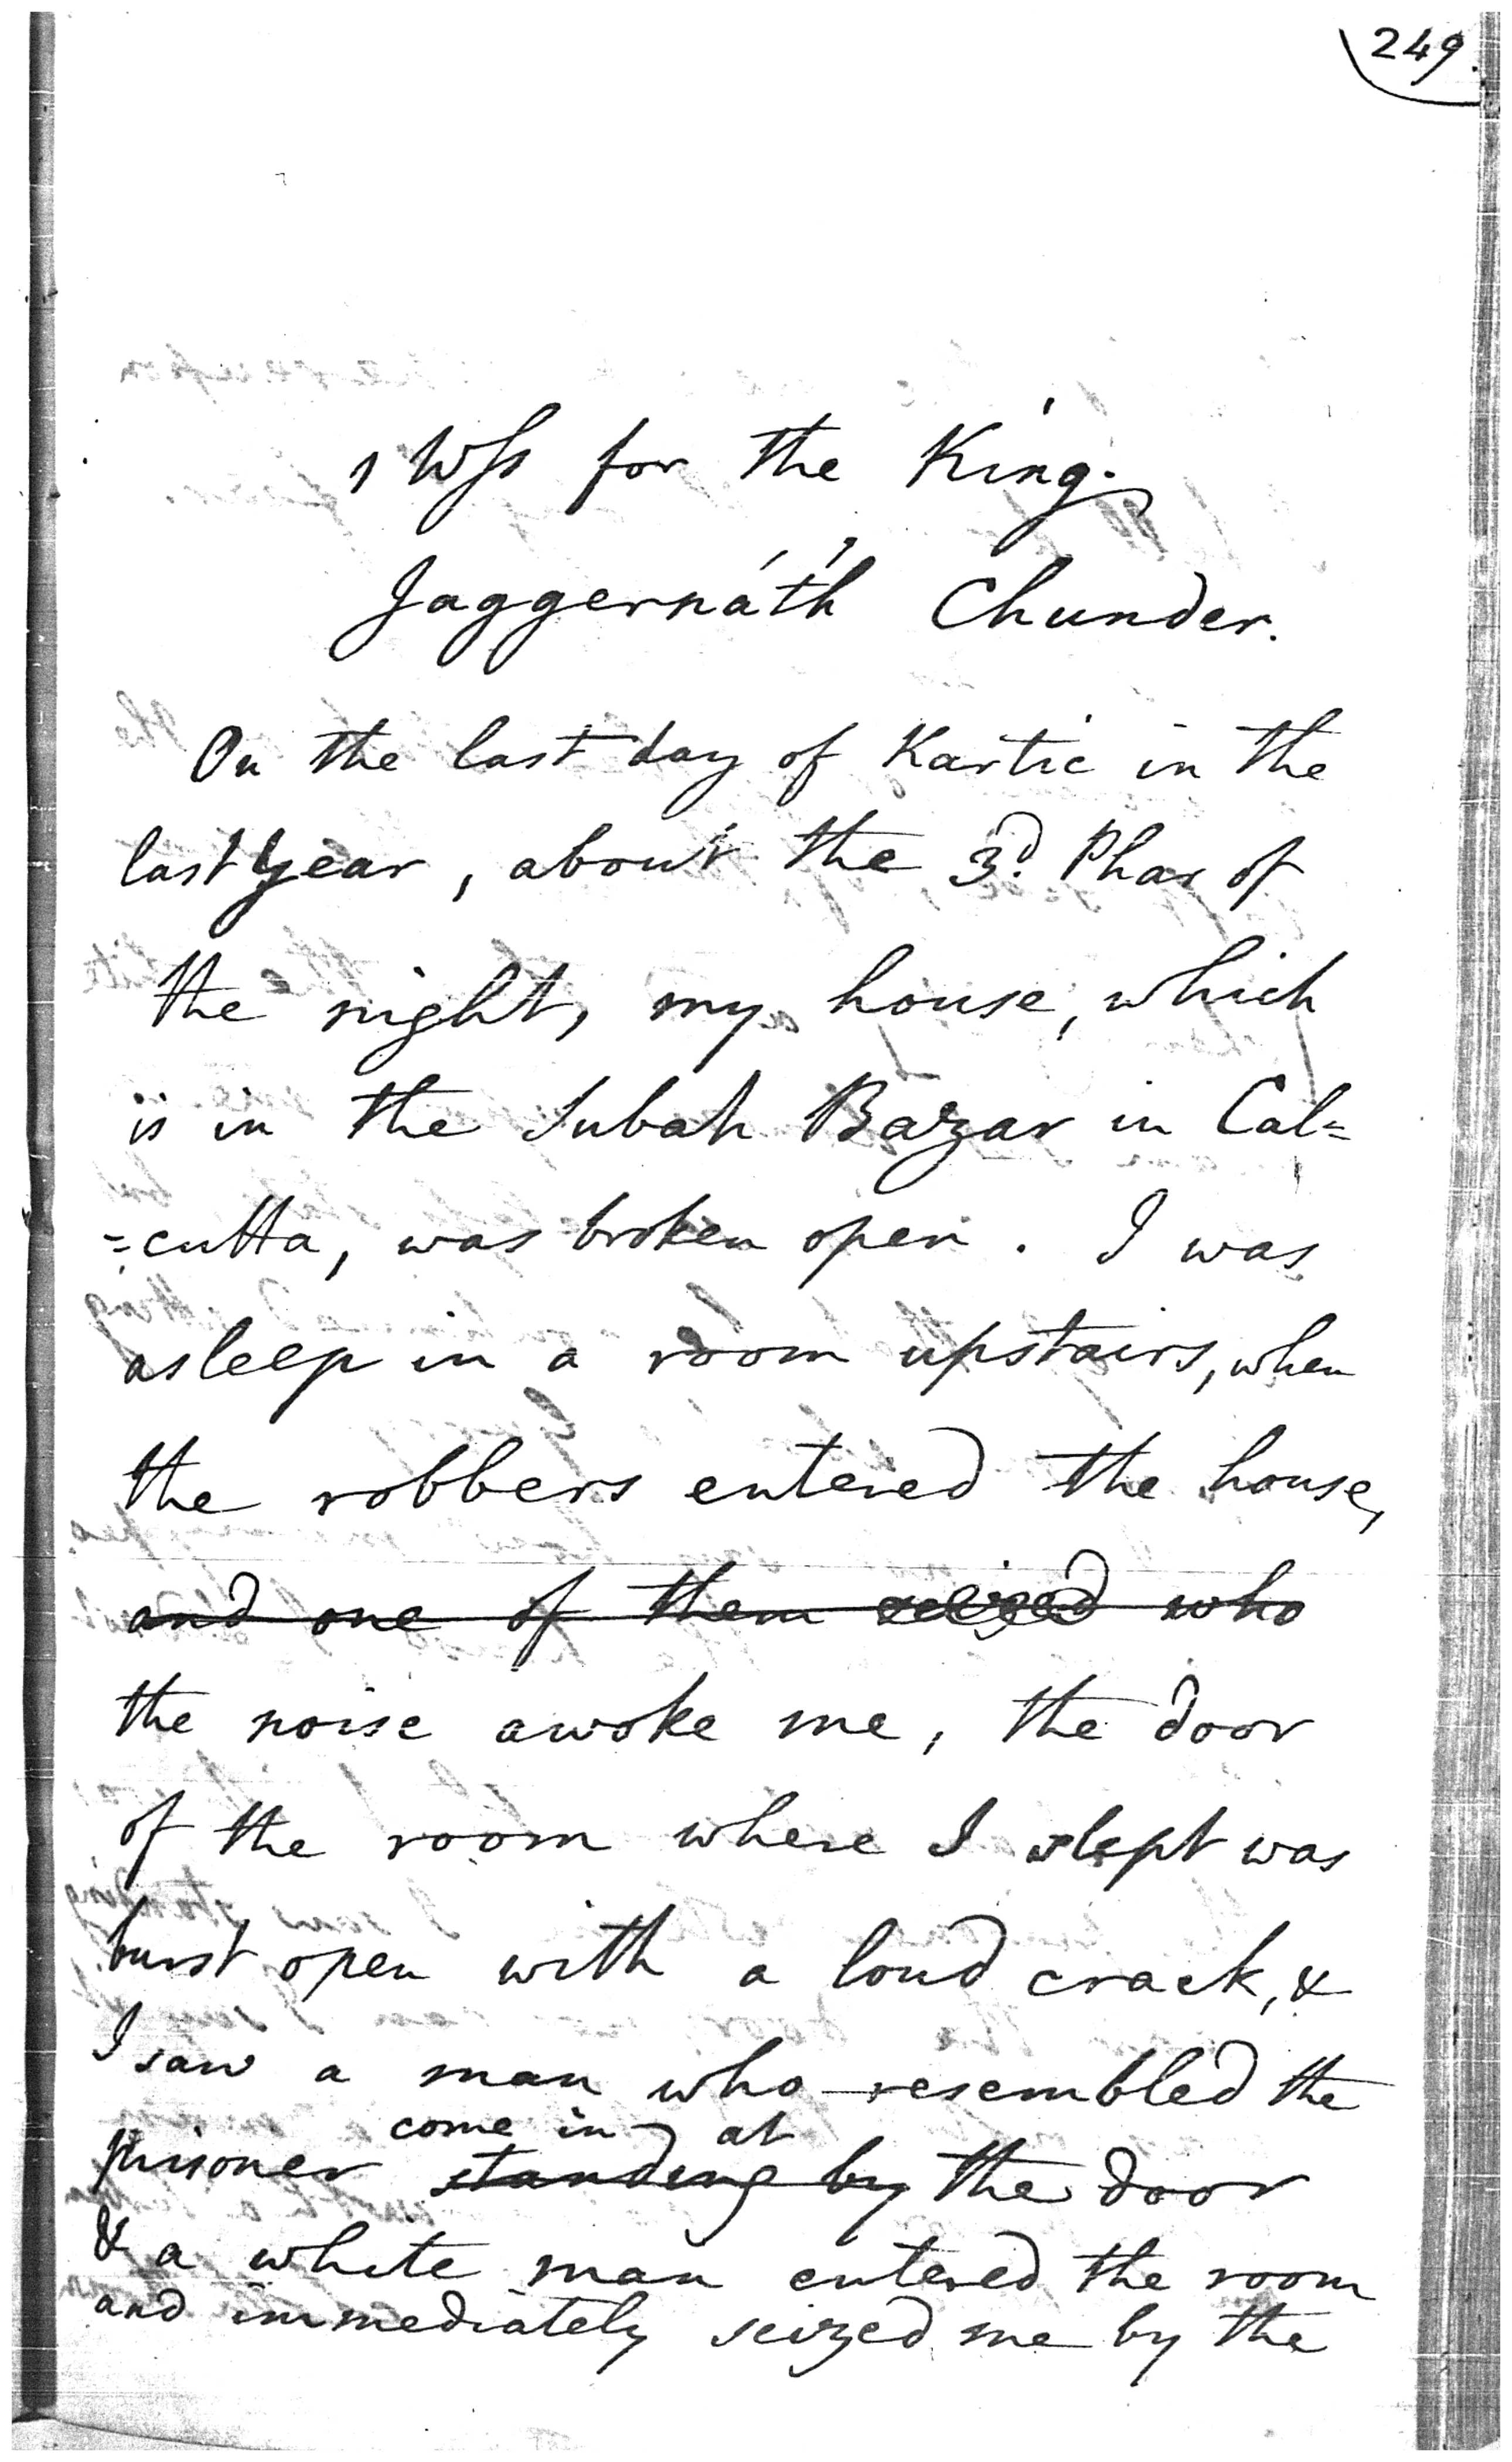 249.
1 Wss for the King.
Jaggernáth Chunder.
On the last day of Kartic in the
last year, about the 3d. Phar of
the night, my house, which
is in the Subah Bazar in Cal=
=cutta, was broken open. I was
asleep in a room upstairs, when
the robbers entered the house,
and one of them seized who
the noise awoke me, the door
of the room where I slept was
burst open with a loud crack, &
I saw a man who resembled the
come in at
prisoner standing by the door
& a white man entered the room
and immediately seized me by the